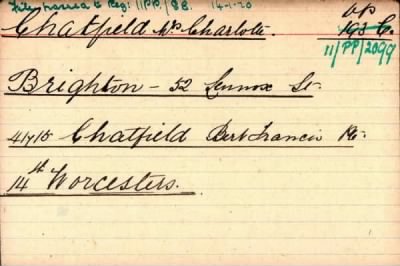 File passed to Reg: 11PP/88. 14-1-20
Chatfield Mrs Charlote. DP
193 C.
11/PP/2099
Brighton - 52 Lennox St.
41715 Chatfield Bert Francis Pte
14th Worcesters.